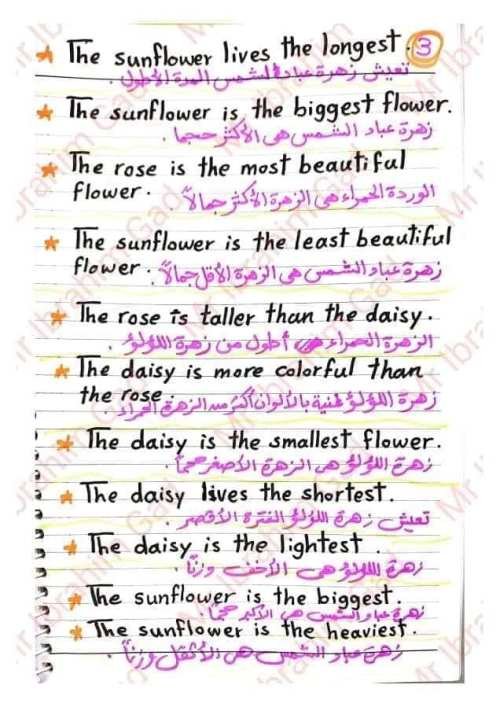 The sunflower lives the longest. 3
تعيش زهرة عباد الشمس المدة الأطول.
The sunflower is the biggest flower.
زهرة عباد الشمس هى الأكثر حجما.
The rose is the most beautiful
flower. الوردة الحمراء هى الزهرة الأكثر جمالاً.
The sunflower is the least beautiful
flower. زهرة عباد الشمس هى الزهرة الأقل جمالاً
The rose is taller than the daisy.
الزهرة الحمراء هى أطول من زهرة اللؤلؤ.
The daisy is more colorful than
the rose. زهرة اللؤلؤ غنية بالألوان أكثر من الزهرة الحمراء.
The daisy is the smallest flower.
زهرة اللؤلؤ هى الزهرة الأصغر حجماً.
The daisy lives the shortest.
تعيش زهرة اللؤلؤ الفترة الأقصر.
The daisy is the lightest.
زهرة اللؤلؤ هى الأخف وزناً.
The sunflower is the biggest.
زهرة عباد الشمس هى الأكبر حجماً.
The sunflower is the heaviest.
زهرة عباد الشمس هى الأثقل وزناً.
Mr Ibrahim Gad